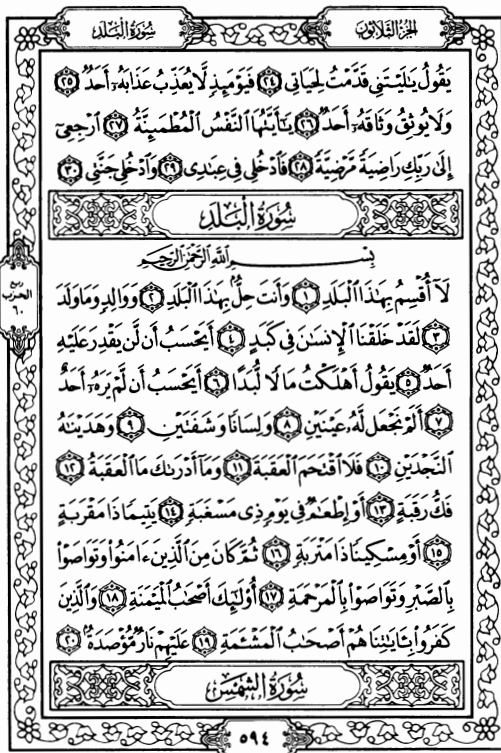 سُورَةُ ٱلْبَلَدِ
ٱلْجُزْءُ ٱلثَّلَاثُونَ
يَقُولُ يَٰلَيْتَنِي قَدَّمْتُ لِحَيَاتِي ٢٤ فَيَوْمَئِذٍ لَّا يُعَذِّبُ عَذَابَهُۥٓ أَحَدٌ ٢٥
وَلَا يُوثِقُ وَثَاقَهُۥٓ أَحَدٌ ٢٦ يَٰٓأَيَّتُهَا ٱلنَّفْسُ ٱلْمُطْمَئِنَّةُ ٢٧ ٱرْجِعِىٓ
إِلَىٰ رَبِّكِ رَاضِيَةً مَّرْضِيَّةً ٢٨ فَٱدْخُلِى فِى عِبَٰدِى ٢٩ وَٱدْخُلِى جَنَّتِى ٣٠
سُورَةُ ٱلْبَلَدِ
بِسْمِ ٱللَّهِ ٱلرَّحْمَٰنِ ٱلرَّحِيمِ
لَآ أُقْسِمُ بِهَٰذَا ٱلْبَلَدِ ١ وَأَنتَ حِلٌّۢ بِهَٰذَا ٱلْبَلَدِ ٢ وَوَالِدٍ وَمَا وَلَدَ
٣ لَقَدْ خَلَقْنَا ٱلْإِنسَٰنَ فِى كَبَدٍ ٤ أَيَحْسَبُ أَن لَّن يَقْدِرَ عَلَيْهِ
أَحَدٌ ٥ يَقُولُ أَهْلَكْتُ مَالًا لُّبَدًا ٦ أَيَحْسَبُ أَن لَّمْ يَرَهُۥٓ أَحَدٌ
٧ أَلَمْ نَجْعَل لَّهُۥ عَيْنَيْنِ ٨ وَلِسَانًا وَشَفَتَيْنِ ٩ وَهَدَيْنَٰهُ
ٱلنَّجْدَيْنِ ١٠ فَلَا ٱقْتَحَمَ ٱلْعَقَبَةَ ١١ وَمَآ أَدْرَىٰكَ مَا ٱلْعَقَبَةُ ١٢
فَكُّ رَقَبَةٍ ١٣ أَوْ إِطْعَٰمٌ فِى يَوْمٍ ذِى مَسْغَبَةٍ ١٤ يَتِيمًا ذَا مَقْرَبَةٍ
١٥ أَوْ مِسْكِينًا ذَا مَتْرَبَةٍ ١٦ ثُمَّ كَانَ مِنَ ٱلَّذِينَ ءَامَنُوا۟ وَتَوَاصَوْا۟
بِٱلصَّبْرِ وَتَوَاصَوْا۟ بِٱلْمَرْحَمَةِ ١٧ أُو۟لَٰٓئِكَ أَصْحَٰبُ ٱلْمَيْمَنَةِ ١٨ وَٱلَّذِينَ
كَفَرُوا۟ بِـَٔايَٰتِنَا هُمْ أَصْحَٰبُ ٱلْمَشْـَٔمَةِ ١٩ عَلَيْهِمْ نَارٌ مُّؤْصَدَةٌۢ ٢٠
سُورَةُ ٱلشَّمْسِ
ربع
الحزب
٦٠
٥٩٤